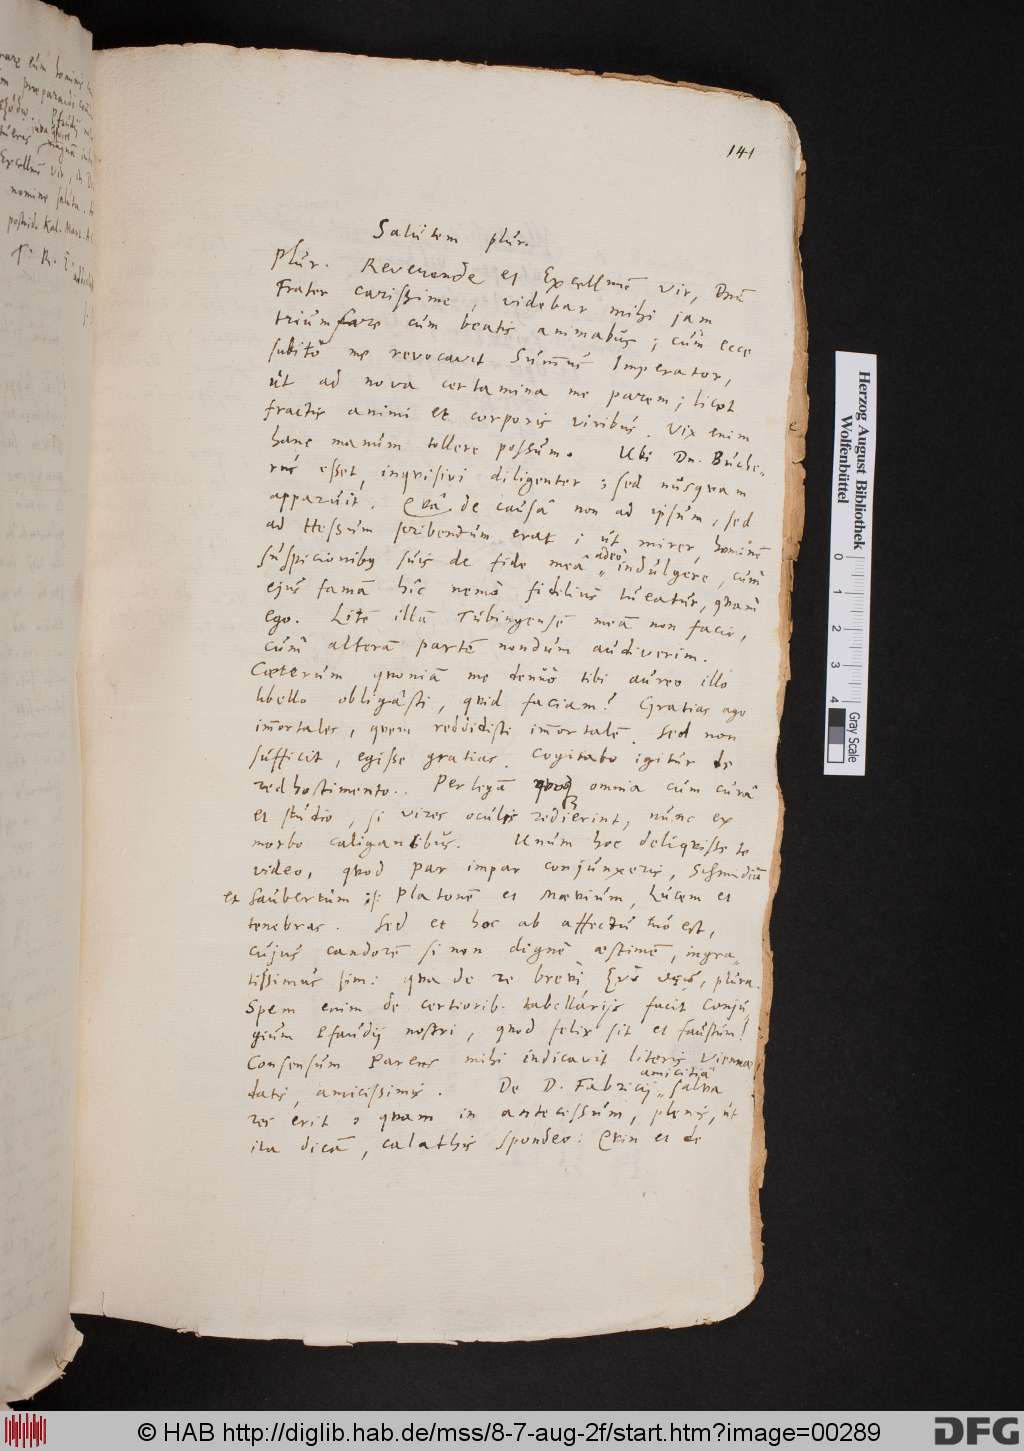 141
Salutem plur.
plur. Reverende et Excellme vir, Dne
Frater carissime, videbar mihi jam
trium cum beatis animabus; cum ecce
subitò me revocavit Sum̄us Imperator,
ut ad nova certamina me parem; licet
fractis animi et corporis viribus. Vix enim
hanc manum tollere possum. Ubi Dn. Buche-
rus esset, inqvisivi diligenter; sed nusqvam
apparuit. Qvâ de causâ non ad ipsum, sed
ad Hessum scribendum erat; ut mirer, hominē
adeò
suspicionibq suis de fide mea indulgere, cùm
ejus famā hîc nemò fidelius tueatur, qvam
ego. Litē illā Tubingensē meā non facio,
cùm alterā partē nondum audiverim.
Cæterum qvoniā me denuò tibi aureo illo
libello obligâsti, qvid faciam? Gratias ago
im̄ortales, qvem reddidisti im̄ortalē. Sed non
sufficit, egisse gratias. Cogitabo igitur de
redhostimento. Perlegā omnia cum curâ
et studio, si vires oculis redierint, nunc ex
morbo caligantibus. Unum hoc deliqvisse te
video, qvod par impar conjunxeris, Schmidiū
et Saubertum :|: Platonē et Mævium, Lucem et
tenebras. Sed et hoc ab affectu tuo est,
cujus candorē si non dignè æstimē, ingra-
tissimus sim: qva de re brevi, plura.
Spem enim de certiorib. tabellarijs facit Conju-
gium Pfaudij nostri, qvod felix sit et faustum!
Consensum Parens mihi indicavit literis Viennæ
amicitiâ
datis, amicissimis. De D. Fabricij salva
res erit, qvam in antecessum, plenis, ut
ita dicā, calathis spondeo: Qvin et de
Herzog August Bibliothek
Wolfenbüttel
0 1 2 3 4
Gray Scale
© HAB http://diglib.hab.de/mss/8-7-aug-2f/start.htm?image=00289
DFG